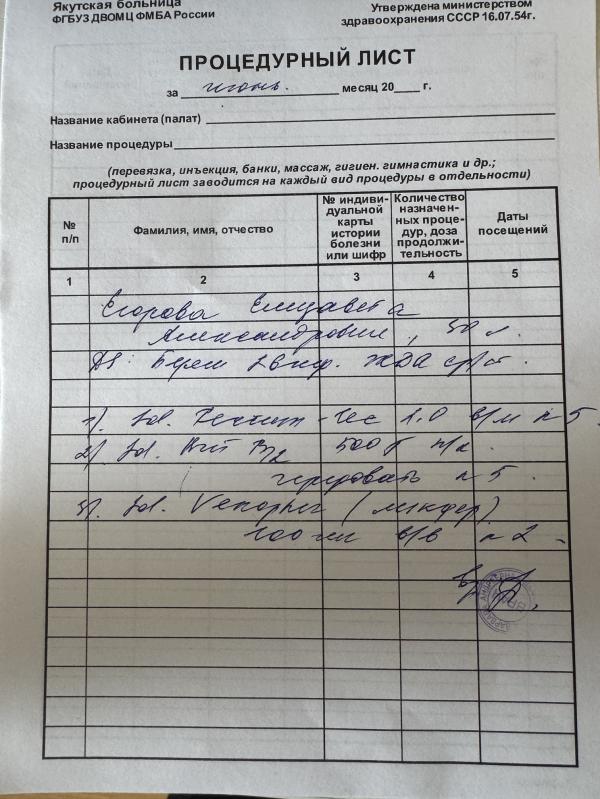 Якутская больница
ФГБУЗ ДВОМЦ ФМБА России
Утверждена министерством
здравоохранения СССР 16.07.54г.
ПРОЦЕДУРНЫЙ ЛИСТ
за июнь. месяц 20____ г.
Название кабинета (палат)
Название процедуры
(перевязка, инъекция, банки, массаж, гигиен. гимнастика и др.;
процедурный лист заводится на каждый вид процедуры в отдельности)
№ п/п
Фамилия, имя, отчество
№ индиви-
дуальной
карты
истории
болезни
или шифр
Количество
назначен-
ных проце-
дур, доза
продолжи-
тельность
Даты
посещений
1 2 3 4 5
Егорова Елизавета
Александровна, л.
DS: ЖДА ср/ст.
1). Sol. 1.0 в/м n 5.
2). Sol. Вит B12 500 п/к
n 5.
3). Sol. Венофер (ликфер)
100 мг в/в n 2